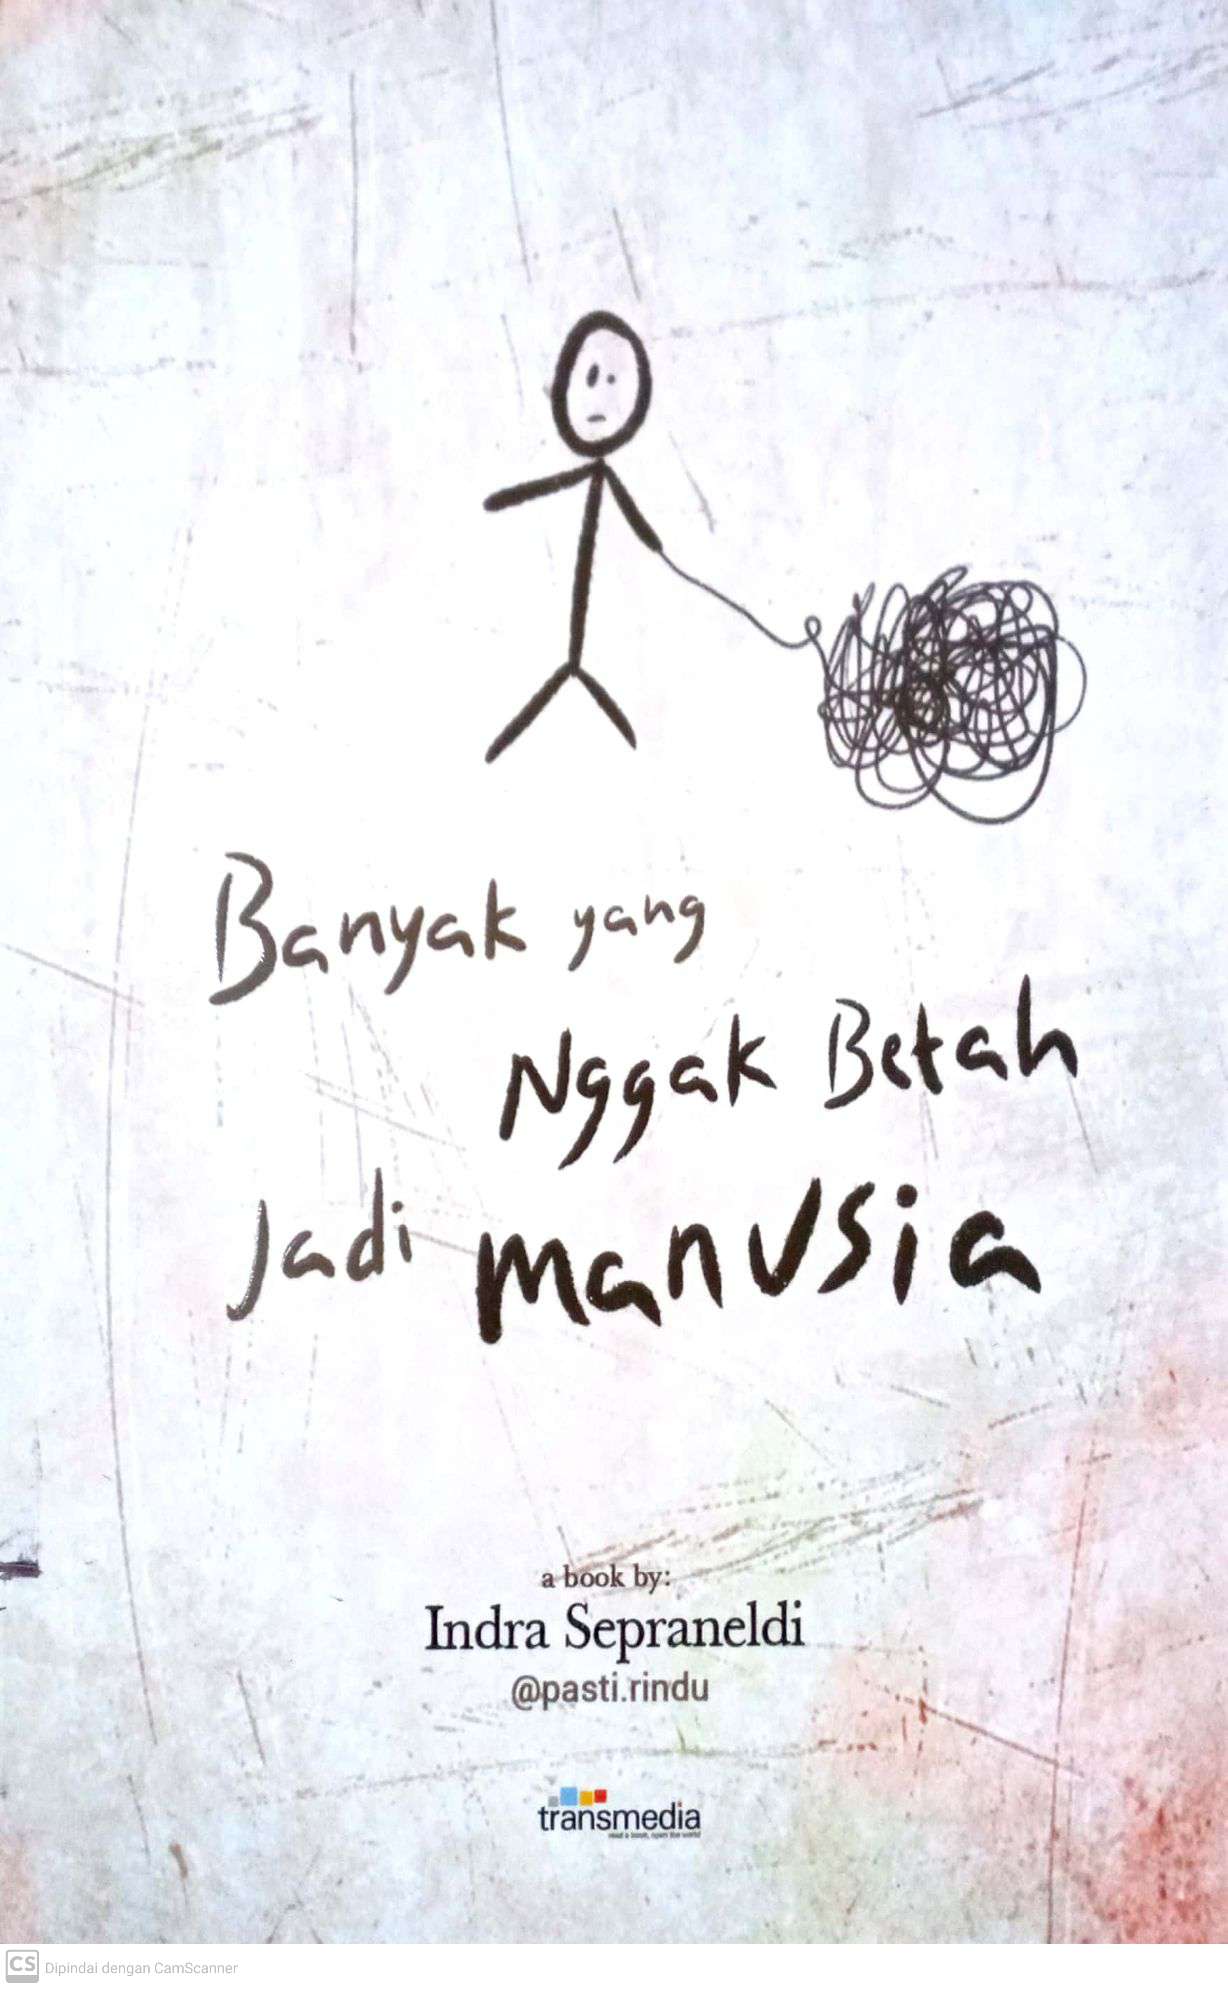 Banyak yang
Nggak Betah
Jadi manusia
a book by:
Indra Sepraneldi
@pasti.rindu
transmedia
read a book, open the world
CS Dipindai dengan CamScanner